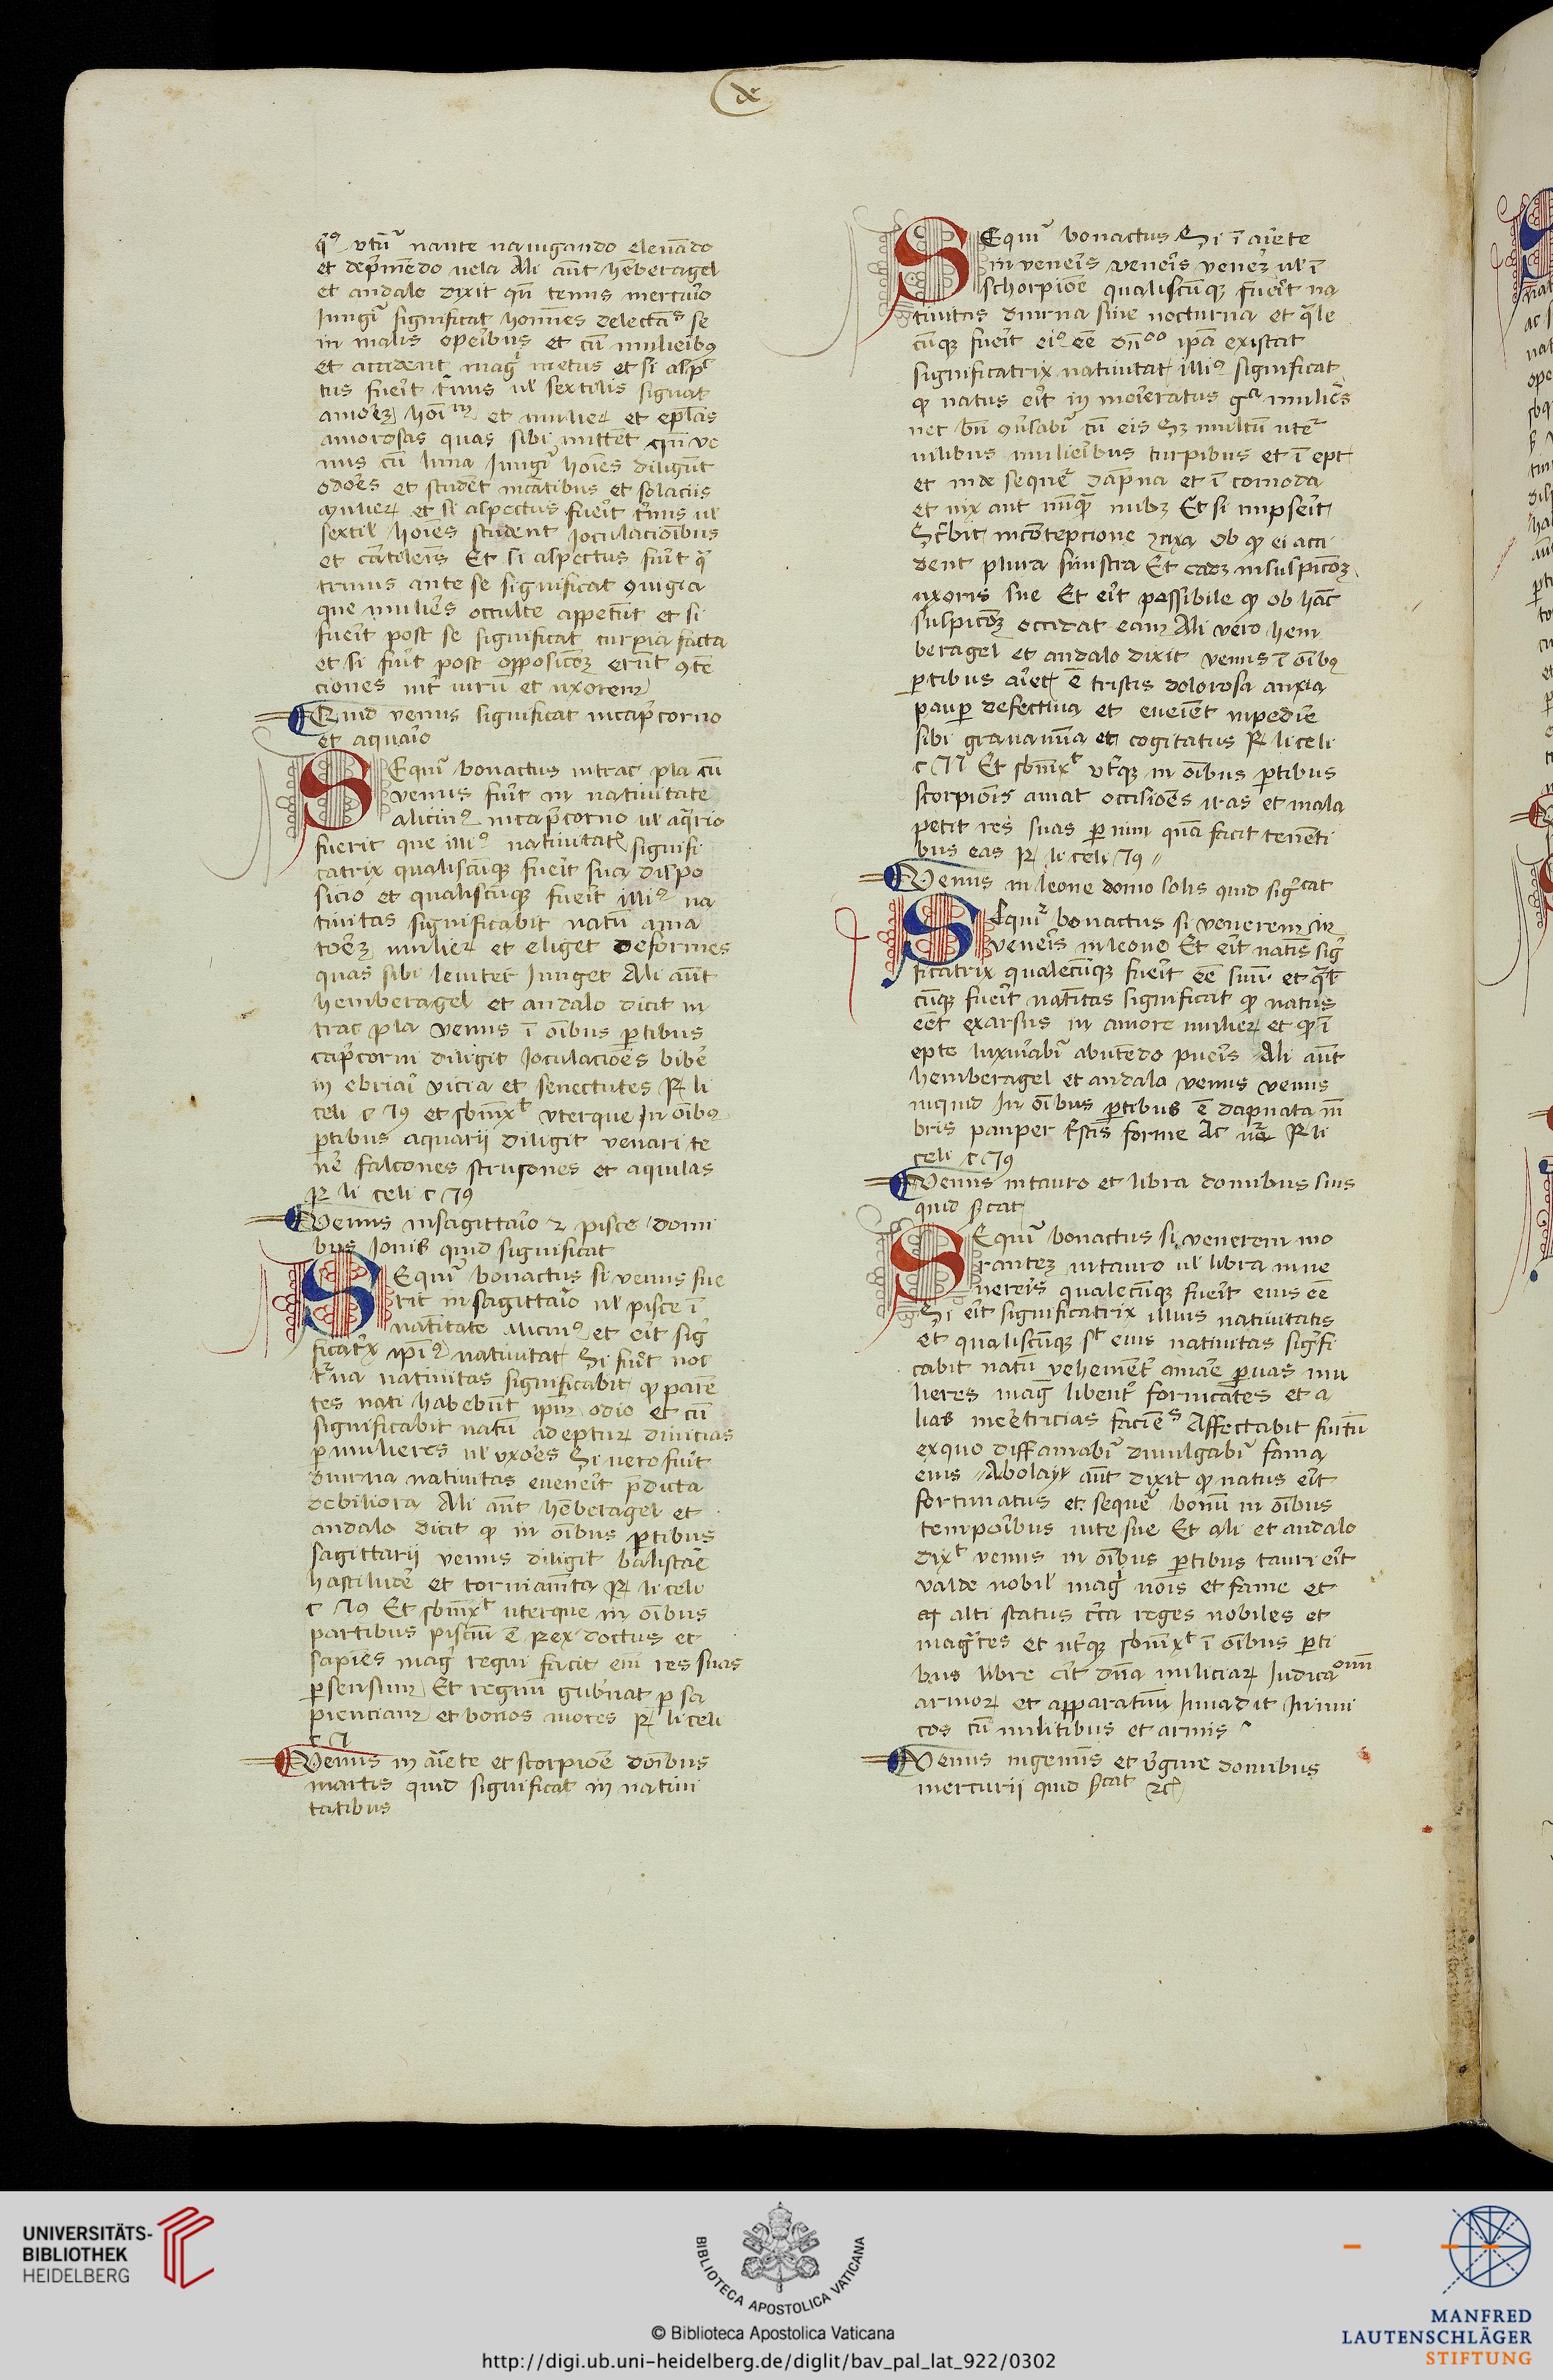 de
vtū nante nauigando eleuādo
et dep̄mēdo uela Ali aūt hēberagel
et andalo dixit qn̄ venus mercurio
Jungit̄ significat homines delectātes se
in malis operibus et cū mulieribꝰ
et accident magͥ metus et si aspec
tus fuerit trinus ul sextilis signat
amorēꝫ hoīm et mulieꝝ et epl̄as
amorosas quas sibi mittēt qn̄ ve
nus cū luna Jungit̄ hoīes diligūt
odores et student in cātibus et solaciis
mulieꝝ et si aspectus fuerit trinus ul
sextil hoīes student Joculacionibus
et cātilenis Et si aspectus fuīt qͣ
trinus ante se significat ꝯuigia
que mulieres occulte appetūt et si
fuerit post se significat turpia facta
et si fuīt post opposicōeꝫ erūt ꝯtē
ciones int̄ uirū et uxorem
Quid venus significat in cap̄corno
et aquario
SEquit̄ bonactus in trac pla cū
venus fuīt in natiuitate
alicuiꝰ in cap̄corno ul aq̄rio
fuerit que illiꝰ natiuitatꝭ signifi
catrix qualiscūqꝫ fueīt sua dispo
sicio et qualiscūqꝫ fueīt illiꝰ na
tiuitas significabit natū ama
torēꝫ mulieꝝ et eliget deformes
quas sibi leuiter Junget Ali aūt
hemberagel et andalo dicit in
trac pla venus ī oībus ꝑtibus
cap̄corni diligit Joculacioēs bibe
in ebriaī vicia et senectutes ꝶ li
celi c 79 et sbmxͭ vterque in oībꝰ
ꝑtibus aquarij diligit venari te
nē falcones strugones et aquilas
ꝶ li celi c 79
Venus in sagittario ⁊ pisce domi
bus Jouis quid significat
SEquit̄ bonactus si venus fue
rit in sagittario ul pisce ī
natīitate alicuiꝰ et eīt sigī
ficatx ipīꝰ natiuitatꝭ Si fuīt noc
tͣna natiuitas significabit ꝙ parē
tes nati habebūt ipm odio et cū
significabit natū adeptuꝝ diuicias
ꝑ mulieres ul uxōes Si uero fuīt
diurna natiuitas eueneīt p̄dicta
debiliora Ali aūt hēberagel et
andalo dicit ꝙ in oībus ꝑtibus
sagittarij venus diligit balistaē
hastiludē et torniamēta ꝶ li celi
c 79 Et sbmxͭ uterque in oībus
partibus pisciū ē rex doctus et
sapiēs magͥ regni facit eni res suas
ꝑ sensum Et regnū gubn̄at ꝑ sa
pienciam et bonos mores ꝶ li celi
c 7
Venus in ariete et scorpioē doībus
martis quid significat in natiui
tatibus
SEquit̄ bonactus Si ī ariete
inueneris veneris veneꝫ ul ī
schorpioē qualiscūqꝫ fueīt na
tiuitas diurna siue nocturna et qͣle
cūqꝫ fueīt eiꝰ eē ipā existat
significatrix natiuitatꝭ illiꝰ significat
ꝙ natus eīt in moīeratus gͣ mulieīs
nec bn̄ ꝯūsabit̄ cū eis Sꝫ multū utet̄
uilibus mulieribus turpibus et ī ept
et inde sequet̄ dāpna et ī comoda
et uix aut nūqͣ nubꝫ Et si nupseīt
Sc̄bit in cōtepcione rixa Ob ꝙ ei acci
dent plura sinistra Et cadꝫ in suspicōeꝫ
uxoris sue Et eīt possibile ꝙ ob hāc
suspicōeꝫ occidat eam Ali vero hem
beragel et andalo dixit venus ī oībꝰ
ꝑtibus arietꝭ ē tristis dolorosa anxia
pauꝑ defectiua et eueīent inpedire
sibi grauamīa et cogitatus ꝶ li celi
c 77 Et sbmxͭ vtͥqꝫ in oībus ꝑtibus
scorpionis amat occisioēs iras et mala
petit res suas ꝑ uim quā facit tenēti
bus eas ꝶ li celi 79
Venus in leone domo solis quid sigͥcat
SEquit̄ bonactus si venerem in
veneris in leone Et eīt natīs sigͥ
ficatrix qualecūqꝫ fueīt eē suū et qͣl
cūqꝫ fueīt natītas significat ꝙ natus
eēt exarsus in amore mulieꝝ et ꝙ ī
epte luxuriabit̄ abutēdo pueris Ali aūt
hemberagel et andalo venus venus
inquid In oībus ꝑtibus ē dapnata mē
bris pauper tristis forme Ac ꝶ li
celi c 79
Venus in tauro et libra domibus suis
quid s̄cat
SEquit̄ bonactus si venerem mo
rantēꝫ in tauro ul libra in ue
neris qualecūqꝫ fueīt eius eē
Si eīt significatrix illius natiuitatis
et qualiscūqꝫ sͭ eius natiuitas sigͥfi
cabit natū vehemēt̄ amāre ꝑuas mu
lieres magͥ libent̄ fornicātes et a
lias meretricias faciēˢ Affectabit
ex quo diffamabit̄ diuulgabit̄ fama
eius Abolayt aūt dixit ꝙ natus eīt
fortunatus et sequet̄ bonū in oībus
temporibus uite sue Et ali et andalo
dixͭ venus in oībus ꝑtibus tauri eīt
valde nobil magͥ noīs et fame et
alti status circa reges nobiles et
magͣtes et utͥqꝫ sbmxͭ ī oībus ꝑti
bus libre eīt dn̄a miliciaꝝ Judica
armoꝝ et apparatuū Inuadit Inimi
cos cū militibus et armis
Venus in geminis et v̄gine domibus
mercurij quid s̄cat ⁊c̄
UNIVERSITÄTS-
BIBLIOTHEK
HEIDELBERG
BIBLIOTECA APOSTOLICA VATICANA
© Biblioteca Apostolica Vaticana
http://digi.ub.uni-heidelberg.de/diglit/bav_pal_lat_922/0302
MANFRED
LAUTENSCHLÄGER
STIFTUNG